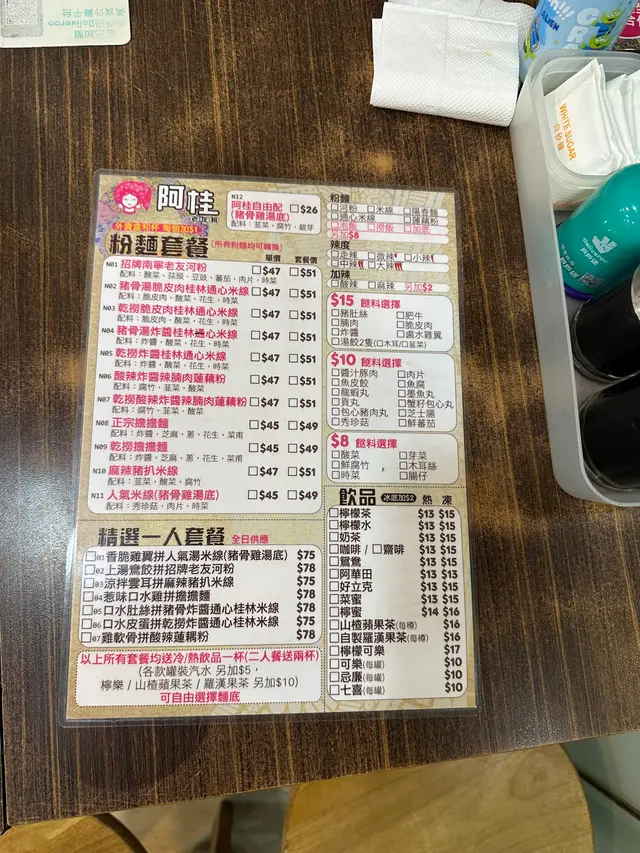 WHITE SUGAR
白砂糖
阿桂
老友粉
外賣盒和杯 每個加$1
N12
阿桂自由配 □$26
(豬骨雞湯底)
配料：韮菜，腐竹，銀芽
粉麵套餐 [所有粉麵均可轉換]
單價 套餐價
N01 招牌南寧老友河粉 □$47 □$51
配料：酸菜，蒜頭，豆豉，蕃茄，肉片，時菜
N02 豬骨湯脆皮肉桂林通心米線 □$47 □$51
配料：脆皮肉，酸菜，花生，時菜
N03 乾撈脆皮肉桂林通心米線 □$47 □$51
配料：脆皮肉，酸菜，花生，時菜
N04 豬骨湯炸醬桂林通心米線 □$47 □$51
配料：炸醬，酸菜，花生，時菜
N05 乾撈炸醬桂林通心米線 □$47 □$51
配料：炸醬，酸菜，花生，時菜
N06 酸辣炸醬辣腩肉蓮藕粉 □$47 □$51
配料：腐竹，韮菜，酸菜
N07 乾撈酸辣炸醬辣腩肉蓮藕粉 □$47 □$51
配料：腐竹，韮菜，酸菜
N08 正宗擔擔麵 □$45 □$49
配料：炸醬，芝麻，蔥，花生，菜甫
N09 乾撈擔擔麵 □$45 □$49
配料：炸醬，芝麻，蔥，花生，菜甫
N10 麻辣豬扒米線 □$47 □$51
配料：韮菜，酸菜，腐竹
N11 人氣米線(豬骨雞湯底) □$45 □$49
配料：秀珍菇，肉片，時菜
精選一人套餐 全日供應
□01 香脆雞翼拼人氣湯米線(豬骨雞湯底) $75
□02 上湯鴛餃拼招牌老友河粉 $78
□03 涼拌雲耳拼麻辣豬扒米線 $75
□04 惹味口水雞拼擔擔麵 $78
□05 口水肚絲拼豬骨炸醬通心桂林米線 $78
□06 口水皮蛋拼乾撈炸醬通心桂林米線 $75
□07 雞軟骨拼酸辣蓮藕粉 $78
以上所有套餐均送冷/熱飲品一杯(二人餐送兩杯)
(各款罐裝汽水 另加$5，
檸樂 / 山楂蘋果茶 / 羅漢果茶 另加$10)
可自由選擇麵底
粉麵
□河粉 □米線 □陽春麵
□通心米線 □蓮藕粉
□泡飯 □撈飯 □加底
另加$8
辣度
□走辣 □微辣 □小辣
□中辣 □大辣
加辣
□酸辣 □麻辣 另加$2
$15 餸料選擇
□豬肚絲 □肥牛
□腩肉 □脆皮肉
□炸醬 □鹵水雞翼
□湯餃2隻(□木耳/□韮菜)
$10 餸料選擇
□醬汁豚肉 □肉片
□魚皮餃 □魚腐
□龍蝦丸 □墨魚丸
□貢丸 □蟹籽包心丸
□包心豬肉丸 □芝士腸
□秀珍菇 □鮮蕃茄
$8 餸料選擇
□酸菜 □芽菜
□鮮腐竹 □木耳絲
□時菜 □腸仔
飲品 冰底加$2 熱 凍
□檸檬茶 $13 $15
□檸檬水 $13 $15
□奶茶 $13 $15
□咖啡 / □齋啡 $13 $15
□鴛鴦 $13 $15
□阿華田 $13 $15
□好立克 $13 $15
□菜蜜 $13 $15
□檸蜜 $14 $16
□山楂蘋果茶(每樽) $16
□自製羅漢果茶(每樽) $16
□檸檬可樂 $17
□可樂(每罐) $10
□忌廉(每罐) $10
□七喜(每罐) $10